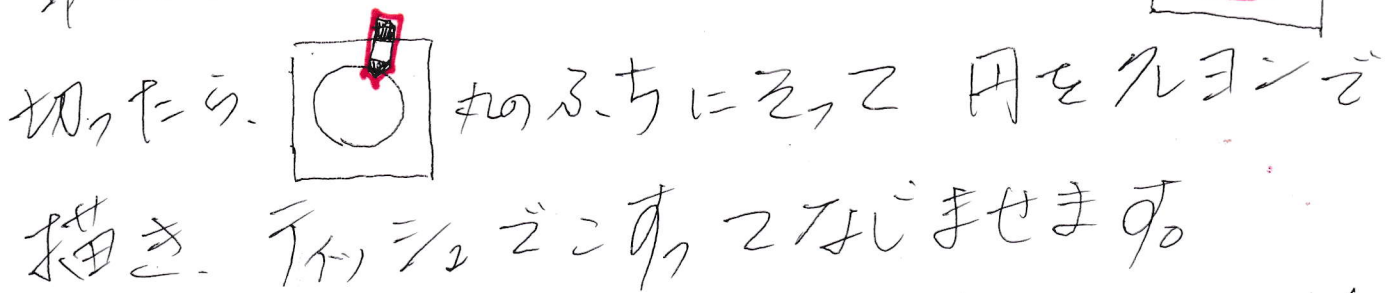 切ったら、丸のふちにそって 円をクレヨンで
描き、ティッシュでこすってなじませます。